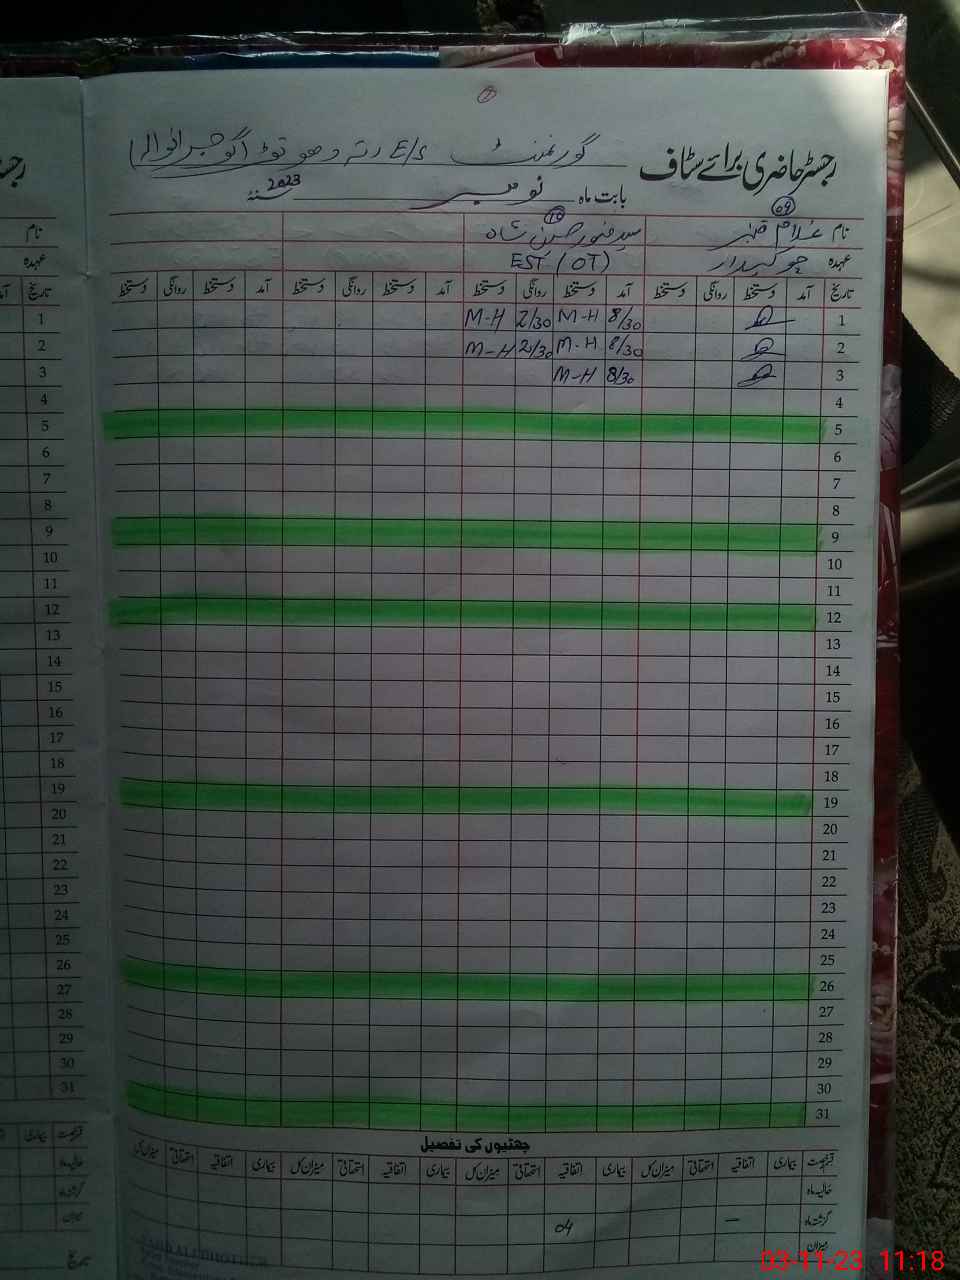 رجسٹر حاضری برائے سٹاف گورنمنٹ E/S رتہ دھوتڑ گوجرانوالہ
بابت ماہ نومبر 2023
09 10
نام غلام قنبر سید منور حسن شاہ
عہدہ چوکیدار EST (OT)
تاریخ آمد دستخط روانگی دستخط آمد دستخط روانگی دستخط آمد دستخط روانگی دستخط آمد دستخط روانگی دستخط
1 8/30 M-H 2/30 M-H
2 8/30 M-H 2/30 M-H
3 8/30 M-H
4
5
6
7
8
9
10
11
12
13
14
15
16
17
18
19
20
21
22
23
24
25
26
27
28
29
30
31
چھٹیوں کی تفصیل
قسم رخصت بیماری اتفاقیہ استحقاقی میزان کل بیماری اتفاقیہ استحقاقی میزان کل بیماری اتفاقیہ استحقاقی میزان کل بیماری اتفاقیہ استحقاقی میزان کل
حالیہ ماہ
گزشتہ ماہ — 04
میزان
نام
عہدہ
تاریخ
1
2
3
4
5
6
7
8
9
10
11
12
13
14
15
16
17
18
19
20
21
22
23
24
25
26
27
28
29
30
31
قسم رخصت بیماری
حالیہ ماہ
گزشتہ ماہ
میزان
تاریخ
03-11-23 11:18